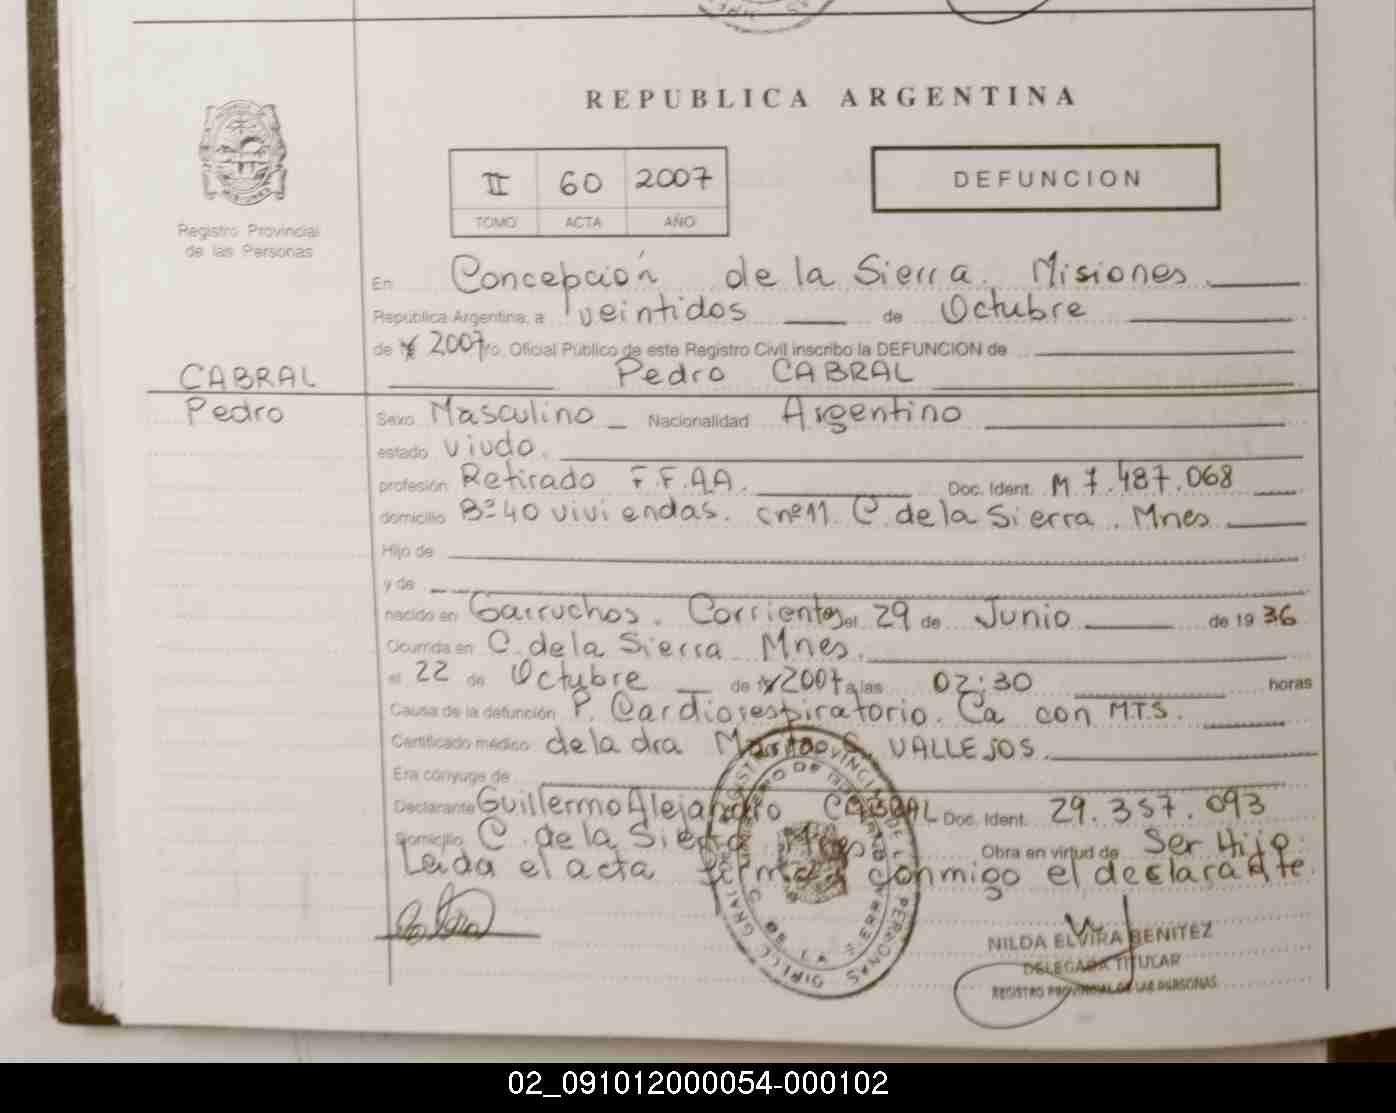 REPUBLICA ARGENTINA
II 60 2007
TOMO ACTA AÑO
DEFUNCION
Registro Provincial
de las Personas
En Concepción de la Sierra. Misiones
República Argentina, a veintidos de Octubre
de 2007 ro, Oficial Público de este Registro Civil inscribo la DEFUNCION de
CABRAL
Pedro CABRAL
Pedro
Sexo Masculino Nacionalidad Argentino
estado viudo.
profesión Retirado F.F.A.A. Doc. Ident. M 7.487.068
domicilio Bº 40 viviendas. c nº 11 C. de la Sierra. Mnes
Hijo de
y de
nacido en Garruchos. Corrientes el 29 de Junio de 19 36
Ocurrida en C. de la Sierra Mnes.
el 22 de Octubre de 2007 a las 02:30 horas
Causa de la defunción P. Cardiorespiratorio. Ca con M.T.S.
Certificado médico de la dra VALLEJOS.
Era cónyuge de
Declarante Guillermo Alejandro CABRAL Doc. Ident. 29.357.093
Domicilio C. de la Sierra Mnes Obra en virtud de Ser Hijo.
Leida el acta firma conmigo el declarante.
NILDA ELVIRA BENITEZ
DELEGADA TITULAR
REGISTRO PROVINCIAL DE LAS PERSONAS
02_091012000054-000102